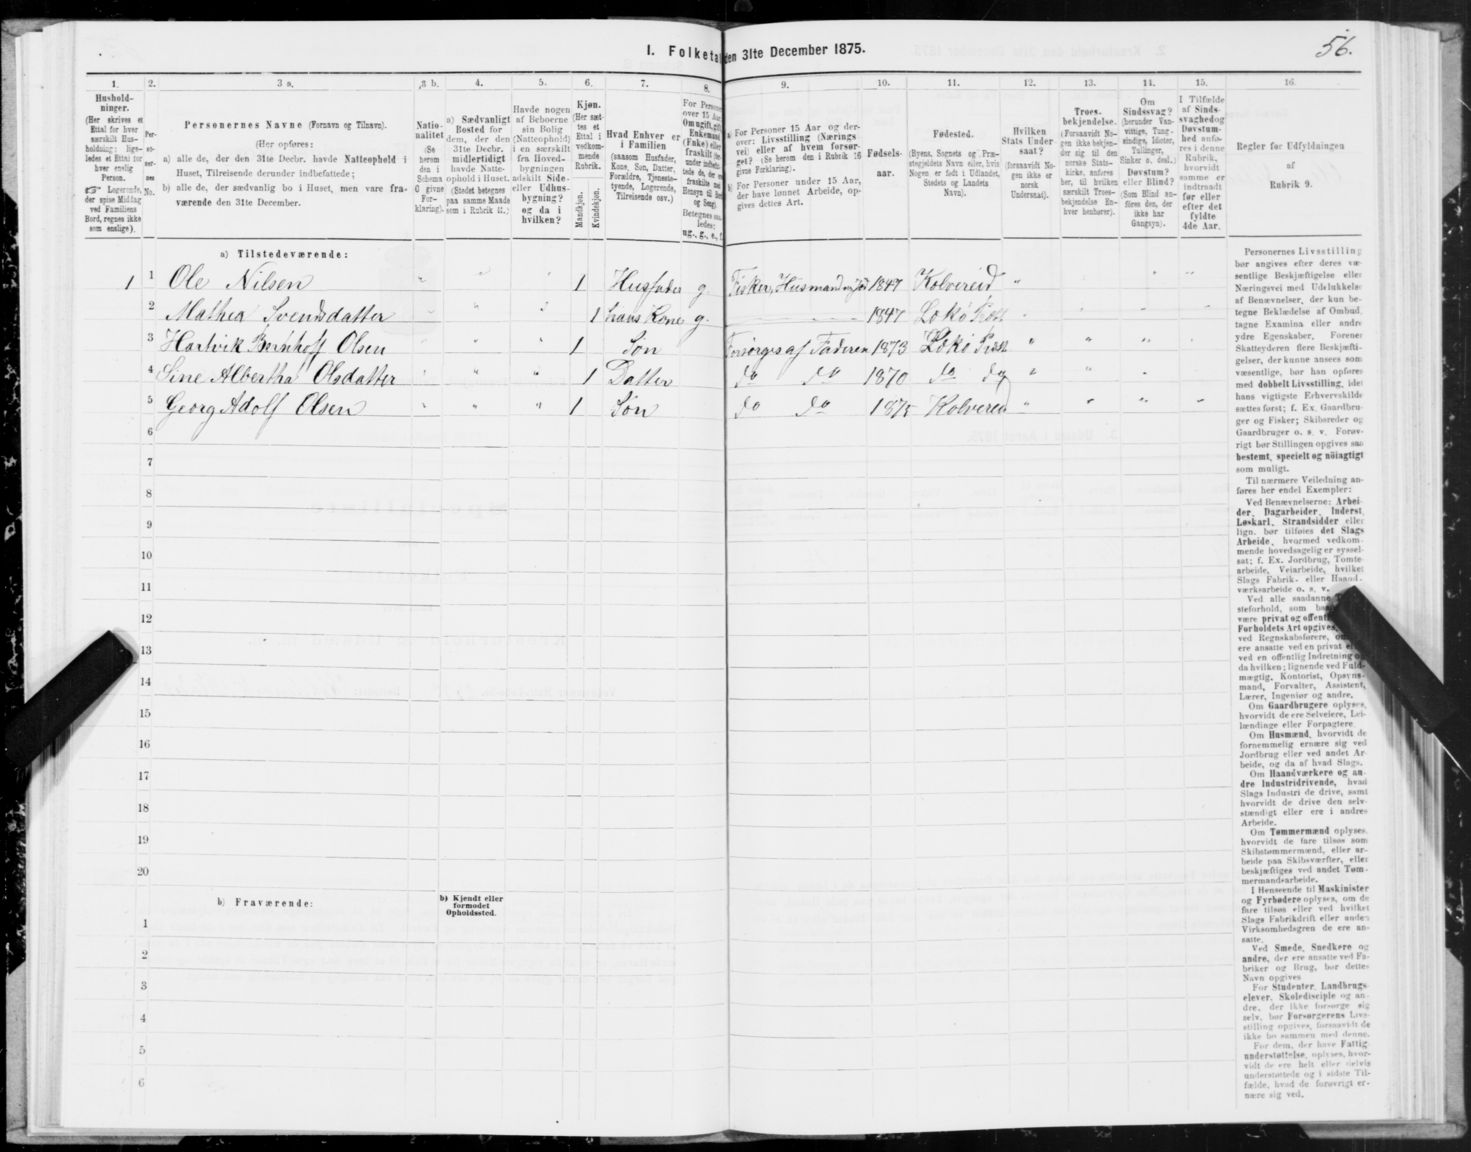 I. Folketal den 31te December 1875.
56.
1.
Hushold-
ninger.
(Her skrives et
Ettal for hver
særskilt Hus-
holdning; lige-
ledes et Ettal for
hver enslig
Person.
Logerende,
der spise Middag
ved Familiens
Bord, regnes ikke
som enslige).
2.
Per-
so-
ner-
nes
No.
3 a.
Personernes Navne (Fornavn og Tilnavn).
(Her opføres:
a) alle de, der den 31te Decbr. havde Natteophold i
Huset, Tilreisende derunder indbefattede;
b) alle de, der sædvanlig bo i Huset, men vare fra-
værende den 31te December.
3 b.
Natio-
nalitet
(Se
herom
den i
Schema
0 givne
For-
klaring).
4.
a) Sædvanligt
Bosted for
dem, der den
31te Decbr.
midlertidigt
havde Natte-
ophold i Huset.
(Stedet betegnes
paa samme Maade
som i Rubrik 11.)
5.
Havde nogen
af Beboerne
sin Bolig
(Natteophold)
i en særskilt
fra Hoved-
bygningen
adskilt Side-
eller Udhus-
bygning?
og da i
hvilken?
6.
Kjøn.
(Her sæt-
tes et
Ettal i
vedkom-
mende
Rubrik.
Mandkjøn.
Kvindekjøn.
7.
Hvad Enhver er
i Familien
(saasom Husfader,
Kone, Søn, Datter,
Forældre, Tjeneste-
tyende, Logerende,
Tilreisende osv.)
8.
For Personer
over 15 Aar:
Om ugift, gift,
Enkemand
(Enke) eller
fraskilt
9.
a) For Personer 15 Aar og der-
over: Livsstilling (Nærings-
vei) eller af hvem forsør-
get? (Se herom den i Rubrik 16
givne Forklaring).
b) For Personer under 15 Aar,
der have lønnet Arbeide, op-
gives dettes Art.
10.
Fødsels-
aar.
11.
Fødested.
(Byens, Sognets og Præ-
stegjeldets Navn eller, hvis
Nogen er født i Udlandet,
Stedets og Landets
Navn).
12.
Hvilken
Stats Under-
saat?
(forsaavidt No-
gen ikke er
norsk
Undersaat).
13.
Troes-
bekjendelse.
(Forsaavidt No-
gen ikke bekjen-
der sig til den
norske Stats-
kirke, anføres
her, til hvilken
særskilt Troes-
bekjendelse En-
hver henhører).
14.
Om
Sindssvag?
(herunder Van-
vittige, Tung-
sindige, Idioter,
Tullinger,
Sinker o. desl.)
Døvstum?
eller Blind?
(Som Blind an-
føres den, der
ikke har
Gangsyn).
15.
I Tilfælde
af Sinds-
svaghed og
Døvstum-
hed anfø-
res i denne
Rubrik,
hvorvidt
samme er
indtraadt
før eller
efter det
fyldte
4de Aar.
16.
Regler for Udfyldningen
af
Rubrik 9.
a) Tilstedeværende:
1 1 Ole Nilsen " " " 1 Husfader g. Fisker, Husmand 1847 Kolvereid "
2 Mathea Svendsdatter " " " 1 hans Kone g. 1847
3 Hartvik Olsen " " " 1 Søn Forsørges af Faderen 1873
4 Sine Albertha Olsdatter " " " 1 Datter do do 1870 do do
5 Georg Adolf Olsen " " " 1 Søn do do 1875 Kolvereid
6
7
8
9
10
11
12
13
14
15
16
17
18
19
20
b) Fraværende:
b) Kjendt eller
formodet
Opholdssted.
1
2
3
4
5
6
Personernes Livsstilling
bør angives efter deres væ-
sentlige Beskjæftigelse eller
Næringsvei med Udelukkelse
af Benævnelser, der kun be-
tegne Beklædelse af Ombud,
tagne Examina eller andre
ydre Egenskaber. Forener
Skatteyderen flere Beskjæfti-
gelser, der kunne ansees som
væsentlige, bør han opføres
med dobbelt Livsstilling, idet
hans vigtigste Erhvervskilde
sættes først; f. Ex. Gaardbru-
ger og Fisker; Skibsreder og
Gaardbruger o. s. v. Forøv-
rigt bør Stillingen opgives saa
bestemt, specielt og nöiagtigt
som muligt.
Til nærmere Veiledning an-
føres her endel Exempler:
Ved Benævnelserne: Arbei-
der, Dagarbeider, Inderst,
Løskarl, Strandsidder eller
lign. bør tilføies det Slags
Arbeide, hvormed vedkom-
mende hovedsagelig er syssel-
sat; f. Ex. Jordbrug, Tomte-
arbeide, Veiarbeide, hvilket
Slags Fabrik- eller Haand-
værksarbeide o. s. v.
Ved alle saadanne
steforhold, som
være privat og
Forholdets Art opgives,
ved Regnskabsførere,
ere ansatte ved en privat eller
ved en offentlig Indretning og
da hvilken; lignende ved Fuld-
mægtig, Kontorist, Opsyns-
mand, Forvalter, Assistent,
Lærer, Ingeniør og andre.
Om Gaardbrugere oplyses,
hvorvidt de ere Selveiere, Lei-
lændinge eller Forpagtere.
Om Husmænd, hvorvidt de
fornemmelig ernære sig ved
Jordbrug eller ved andet Ar-
beide, og da af hvad Slags.
Om Haandværkere og an-
dre Industridrivende, hvad
Slags Industri de drive, samt
hvorvidt de drive den selv-
stændigt eller ere i andres
Arbeide.
Om Tømmermænd oplyses,
hvorvidt de fare tilsøs som
Skibstømmermænd, eller ar-
beide paa Skibsværfter, eller
beskjæftiges ved andet Tøm-
mermandsarbeide.
I Henseende til Maskinister
og Fyrbødere oplyses, om de
fare tilsøs eller ved hvilket
Slags Fabrikdrift eller anden
Virksomhedsgren de ere an-
satte.
Ved Smede, Snedkere og
andre, der ere ansatte ved Fa-
briker og Brug, bør dettes
Navn opgives
For Studenter, Landbrugs-
elever, Skoledisciple og an-
dre, der ikke forsørge sig
selv, bør Forsørgerens Livs-
stilling opgives, forsaavidt de
ikke bo sammen med denne.
For dem, der have Fattig-
understøttelse, oplyses, hvor-
vidt de ere helt eller delvis
understøttede og i sidste Til-
fælde, hvad de forøvrigt er-
nære sig ved.